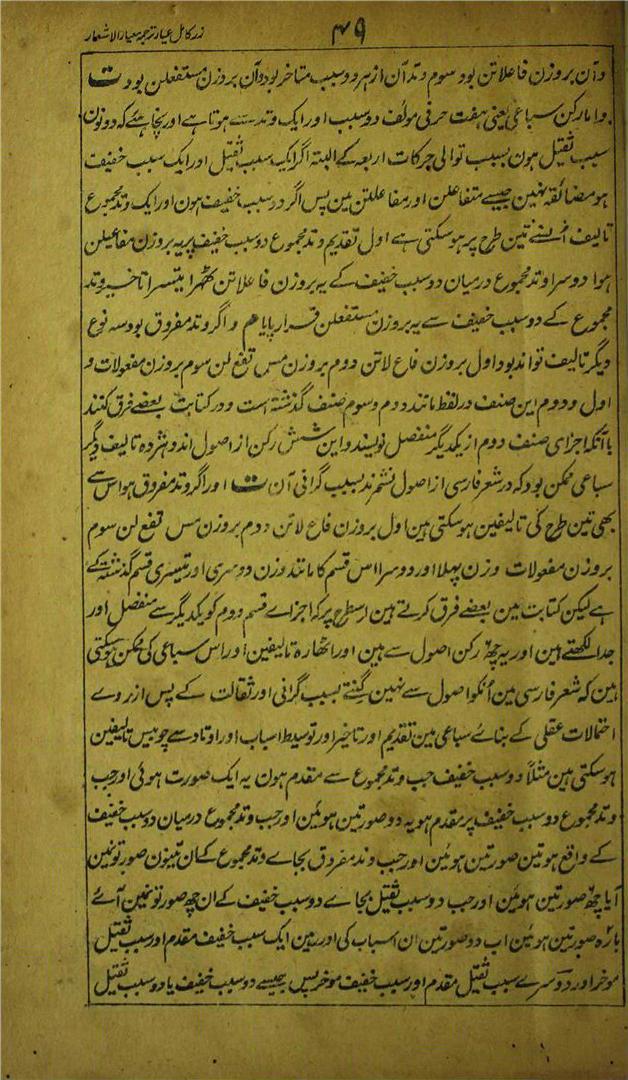 زر کامل عیار ترجمہ معیار الاشعار
۴۹
وآن بروزن فاعلاتن بود سوم وتد آن از ہر دو سبب متاخر بود وآن بروزن مستفعلن بود ت
واما رکن سباعی یعنی ہفت حرفی مولف دو سبب اور ایک وتد سے ہوتا ہے اور نچاہئے کہ دونون
سبب ثقیل ہون بسبب توالی حرکات اربعہ کے البتہ اگر ایک سبب ثقیل اور ایک سبب خفیف
ہو مضائقہ نہین جیسے متفاعلن اور مفاعلتن مین پس اگر دو سبب خفیف ہون اور ایک وتد مجموع
تالیف اُنسے تین طرح پر ہوسکتی ہے اول تقدیم وتد مجموع دو سبب خفیف پر یہ بروزن مفاعیلن
ہوا دوسرا وتد مجموع درمیان دو سبب خفیف کے یہ بروزن فاعلاتن ٹھہرا تیسرا تاخیر وتد
مجموع کے دو سبب خفیف سے یہ بروزن مستفعلن قرار پایا هم و اگر وتد مفروق بود سہ نوع
دیگر تالیف تواند بود اول بروزن فاع لاتن دوم بروزن مس تفع لن سوم بروزن مفعولات و
اول و دوم این صنف در لفظ مانند دوم و سوم صنف گذشتہ است و در کتابت بعضے فرق کنند
باآنکہ اجزای صنف دوم از یکدیگر منفصل نویسند و این شش رکن از اصول اند و هژده تالیف دیگر
سباعی ممکن بود کہ در شعر فارسی از اصول نشمرند بسبب گرانی آن ت اور اگر وتد مفروق ہو اس سے
بھی تین طرح کی تالیفین ہوسکتی ہین اول بروزن فاع لاتن دوم بروزن مس تفع لن سوم
بروزن مفعولات وزن پہلا اور دوسرا اس قسم کا مانند وزن دوسری اور تیسری قسم گذشتہ کے
ہے لیکن کتابت مین بعضے فرق کرتے ہین اسطرح پر کہ اجزاے قسم دوم کو یکدیگر سے منفصل اور
جدا لکھتے ہین اور یہ چھ رکن اصول سے ہین اور اٹھارہ تالیفین اور اس سباعی کی ممکن ہوسکتی
ہین کہ شعر فارسی مین اُنکو اصول سے نہین گنتے بسبب گرانی اور ثقالت کے پس ازروے
احتمالات عقلی کے بناے سباعی مین تقدیم اور تاخیر اور توسیط اسباب اور اوتاد سے چوبیس تالیفین
ہوسکتی ہین مثلاً دو سبب خفیف جب وتد مجموع سے مقدم ہون یہ ایک صورت ہوئی اور جب
وتد مجموع دو سبب خفیف پر مقدم ہو یہ دو صورتین ہوئین اور جب وتد مجموع درمیان دو سبب خفیف
کے واقع ہو تین صورتین ہوئین اور جب وتد مفروق بجاے وتد مجموع کے ان تینون صورتونمین
آیا چھ صورتین ہوئین اور جب دو سبب ثقیل بجاے دو سبب خفیف کے ان چھ صورتونمین آئے
بارہ صورتین ہوئین اب دو صورتین ان اسباب کی اور رہین ایک سبب خفیف مقدم اور سبب ثقیل
موخر اور دوسرے سبب ثقیل مقدم اور سبب خفیف موخر پس جیسے دو سبب خفیف یا دو سبب ثقیل